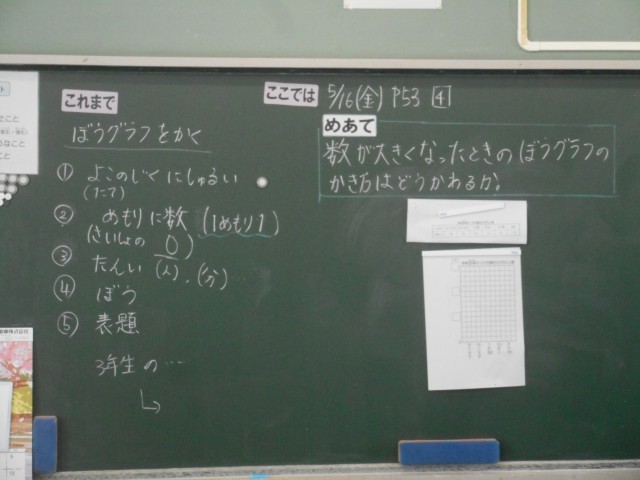 これまで
ぼうグラフをかく
① よこのじくにしゅるい
(たて)
② めもりに数 (1めもり1)
(さいしょの 0)
③ たんい (人)、(分)
④ ぼう
⑤ 表題
3年生の…
ここでは 5/16(金) P53 4
めあて
数が大きくなったときのぼうグラフの
かき方はどうかわるか。